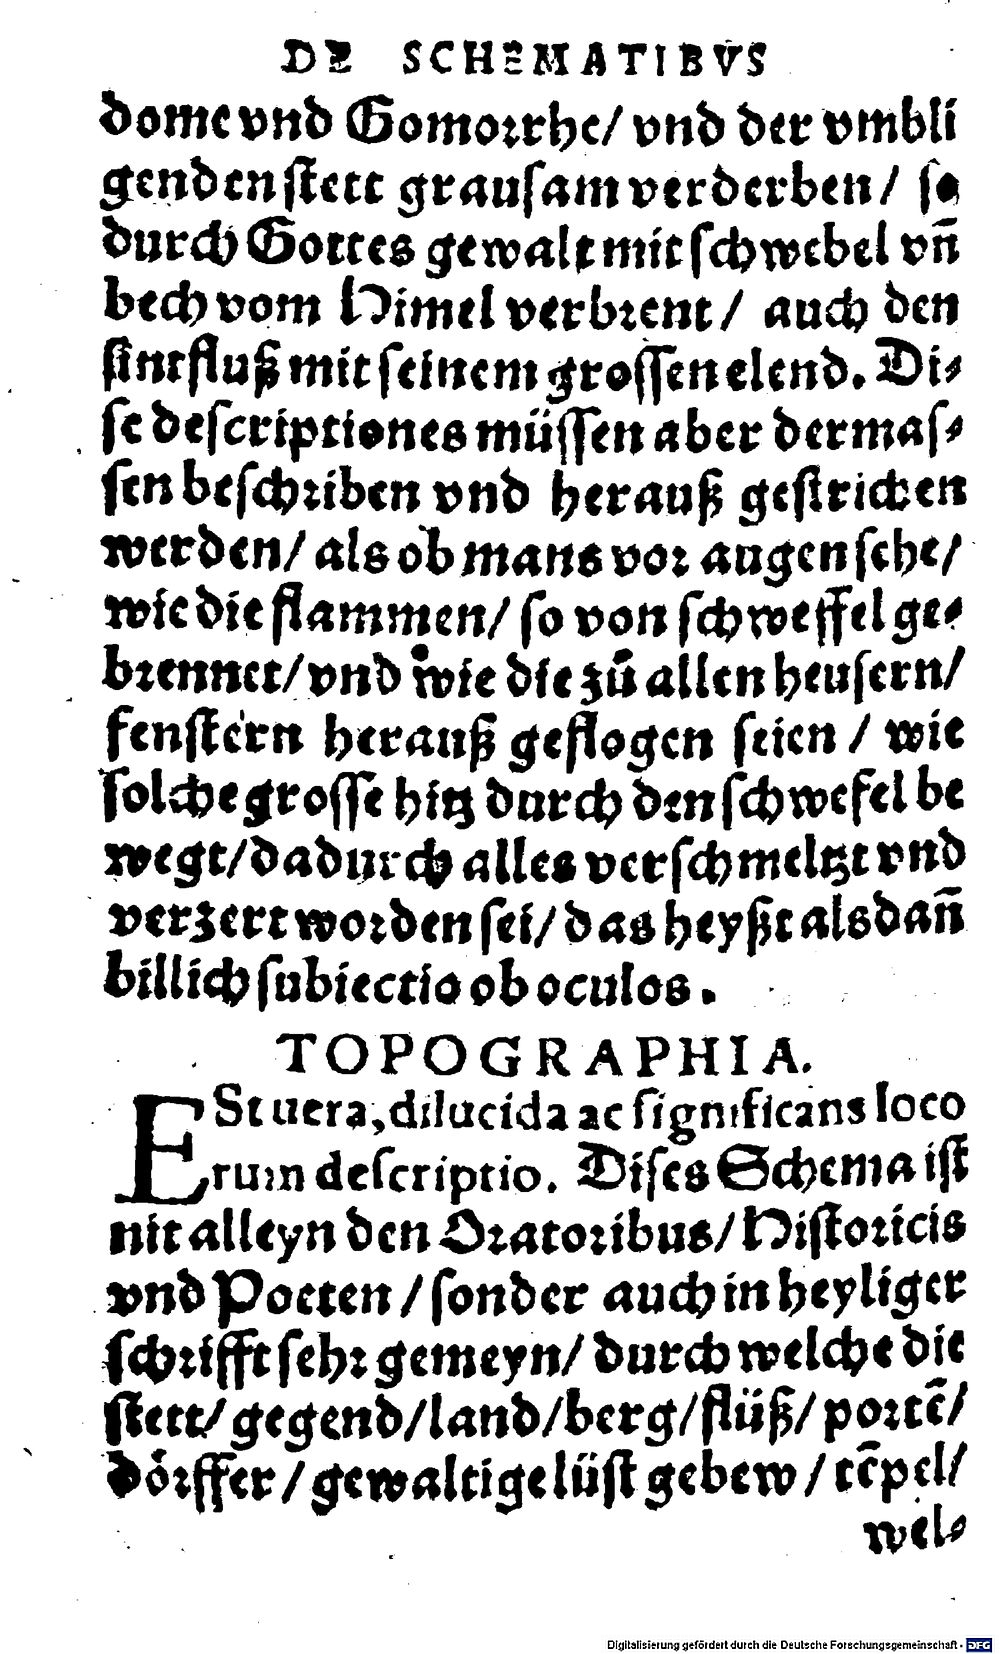 DE SCHEMATIBVS
dome vnd Gomorrhe/ vnd der vmbli
genden stett grausam verderben/ so
durch Gottes gewalt mit schwebel vn̄
bech vom Himel verbrent/ auch den
sintfluß mit seinem grossen elend. Di⸗
se descriptiones müssen aber dermas⸗
sen beschriben vnd herauß gestrichen
werden/ als ob mans vor augen sehe/
wie die flammen/ so von schweffel ge⸗
brennet/ vnd wie die zů allen heusern/
fenstern herauß geflogen seien / wie
solche grosse hitz durch den schwefel be
wegt/ dadurch alles verschmeltzt vnd
verzert worden sei/ das heyßt alsdan̄
billich subiectio ob oculos.
TOPOGRAPHIA.
ESt uera, dilucida ac significans loco
rum descriptio. Dises Schema ist
nit alleyn den Oratoribus/ Historicis
vnd Poeten / sonder auch in heyliger
schrifft sehr gemeyn/ durch welche die
stett/ gegend/ land/ berg/ flüß/ portē/
dörffer / gewaltige lüst gebew / tēpel/
wel⸗
Digitalisierung gefördert durch die Deutsche Forschungsgemeinschaft - DFG